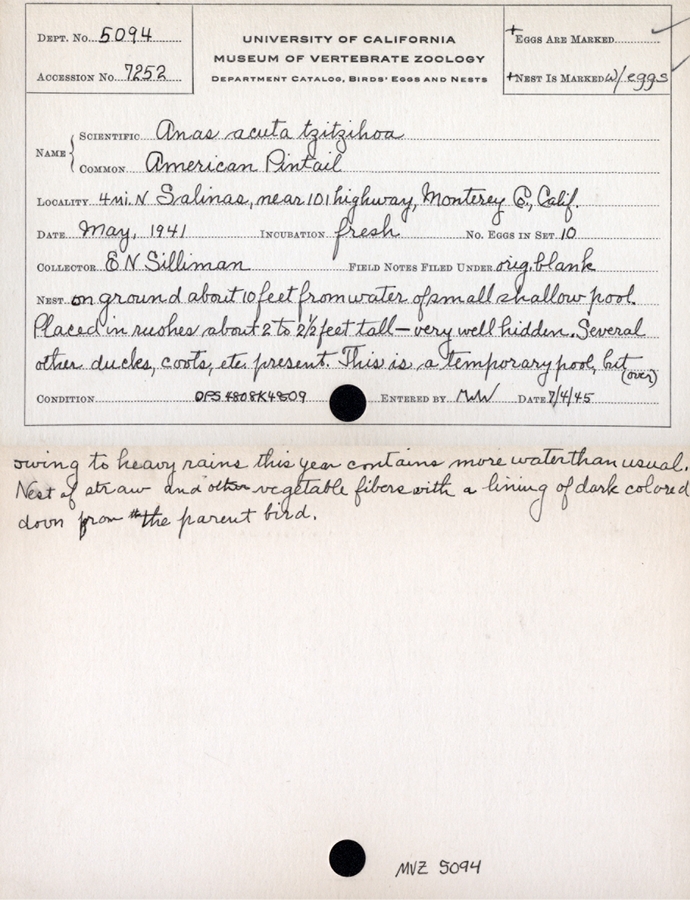 Dept. No. 5094
Accession No. 7252
UNIVERSITY OF CALIFORNIA
MUSEUM OF VERTEBRATE ZOOLOGY
Department Catalog, Birds' Eggs and Nests
+Eggs Are Marked
+Nest Is Marked w/ eggs
Name
Scientific Anas acuta tzitzihoa
Common American Pintail
Locality 4 mi. N Salinas, near 101 highway, Monterey Co., Calif.
Date May, 1941 Incubation fresh No. Eggs in Set 10
Collector E N Silliman Field Notes Filed Under orig. blank
Nest on ground about 10 feet from water of small shallow pool.
Placed in rushes about 2 to 2½ feet tall — very well hidden. Several
other ducks, coots, etc. present. This is a temporary pool, but
(over)
Condition Entered by Date 7/4/45
owing to heavy rains this year contains more water than usual.
Nest of straw and other vegetable fibers with a lining of dark colored
down from the parent bird.
MVZ 5094